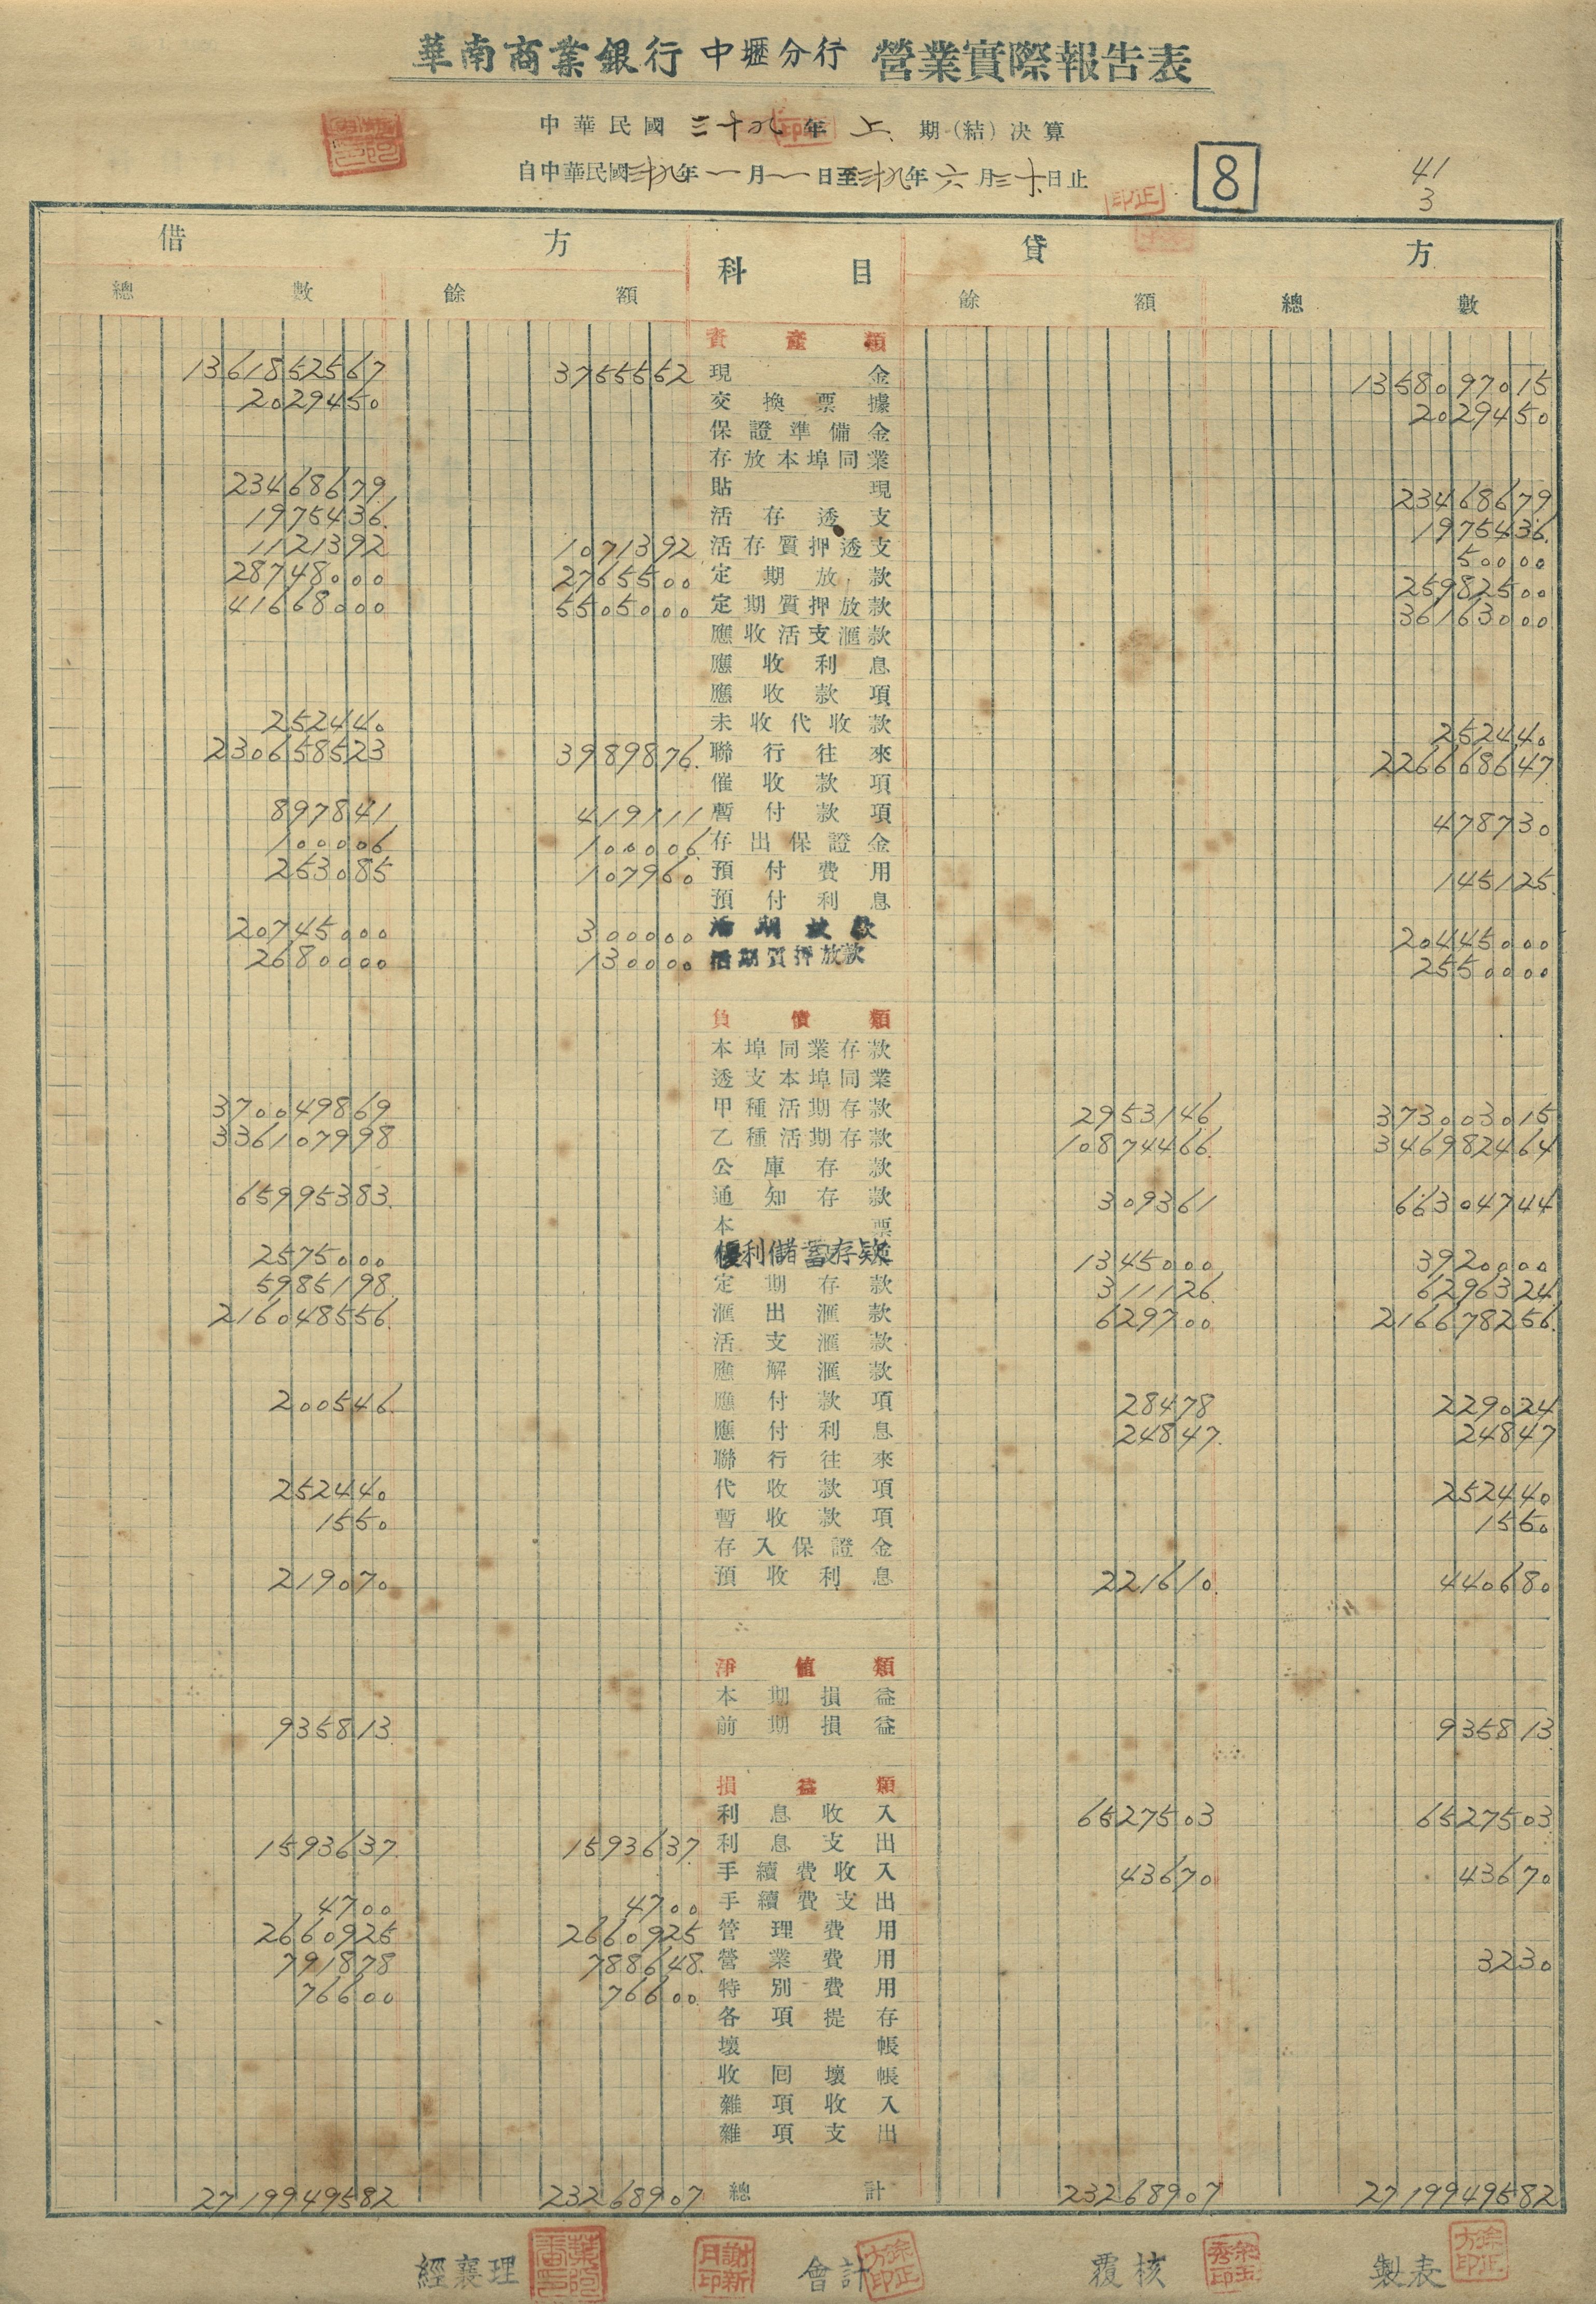 華南商業銀行 中壢分行 營業實際報告表
中華民國 三十九 年 上 期(結)決算
自中華民國三十九年一月一日至三十九年六月三十日止
8
41
3
借方 科目 貸方
總數 餘額 餘額 總數
資產類
1361852567 3755552 現金 1358097015
2029450 交換票據 2029450
保證準備金
存放本埠同業
23468679 貼現 23468679
1975436 活存透支 1975436
1121392 1071392 活存質押透支 50000
28748000 2765500 定期放款 25982500
41668000 5505000 定期質押放款 36163000
應收活支滙款
應收利息
應收款項
252440 未收代收款 252440
230658523 3989876 聯行往來 226668647
催收款項
897841 419111 暫付款項 478730
100006 100006 存出保證金
253085 107960 預付費用 145125
預付利息
20745000 300000 活期放款 20445000
2680000 130000 活期質押放款 2550000
負債類
本埠同業存款
透支本埠同業
370049869 甲種活期存款 2953146 373003015
336107998 乙種活期存款 10874466 346982464
公庫存款
65995383 通知存款 309361 66304744
本票
2575000 優利儲蓄存款 1345000 3920000
5985198 定期存款 311126 6296324
216048556 滙出滙款 629700 216678256
活支滙款
應解滙款
200546 應付款項 28478 229024
應付利息 24847 24847
聯行往來
252440 代收款項 252440
1550 暫收款項 1550
存入保證金
219070 預收利息 221610 440680
淨值類
本期損益
935813 前期損益 935813
損益類
利息收入 6527503 6527503
1593637 1593637 利息支出
手續費收入 43670 43670
4700 4700 手續費支出
2660925 2660925 管理費用
791878 788648 營業費用 3230
76600 76600 特別費用
各項提存
壞帳
收回壞帳
雜項收入
雜項支出
2719949582 23268907 總計 23268907 2719949582
經襄理 會計 覆核 製表